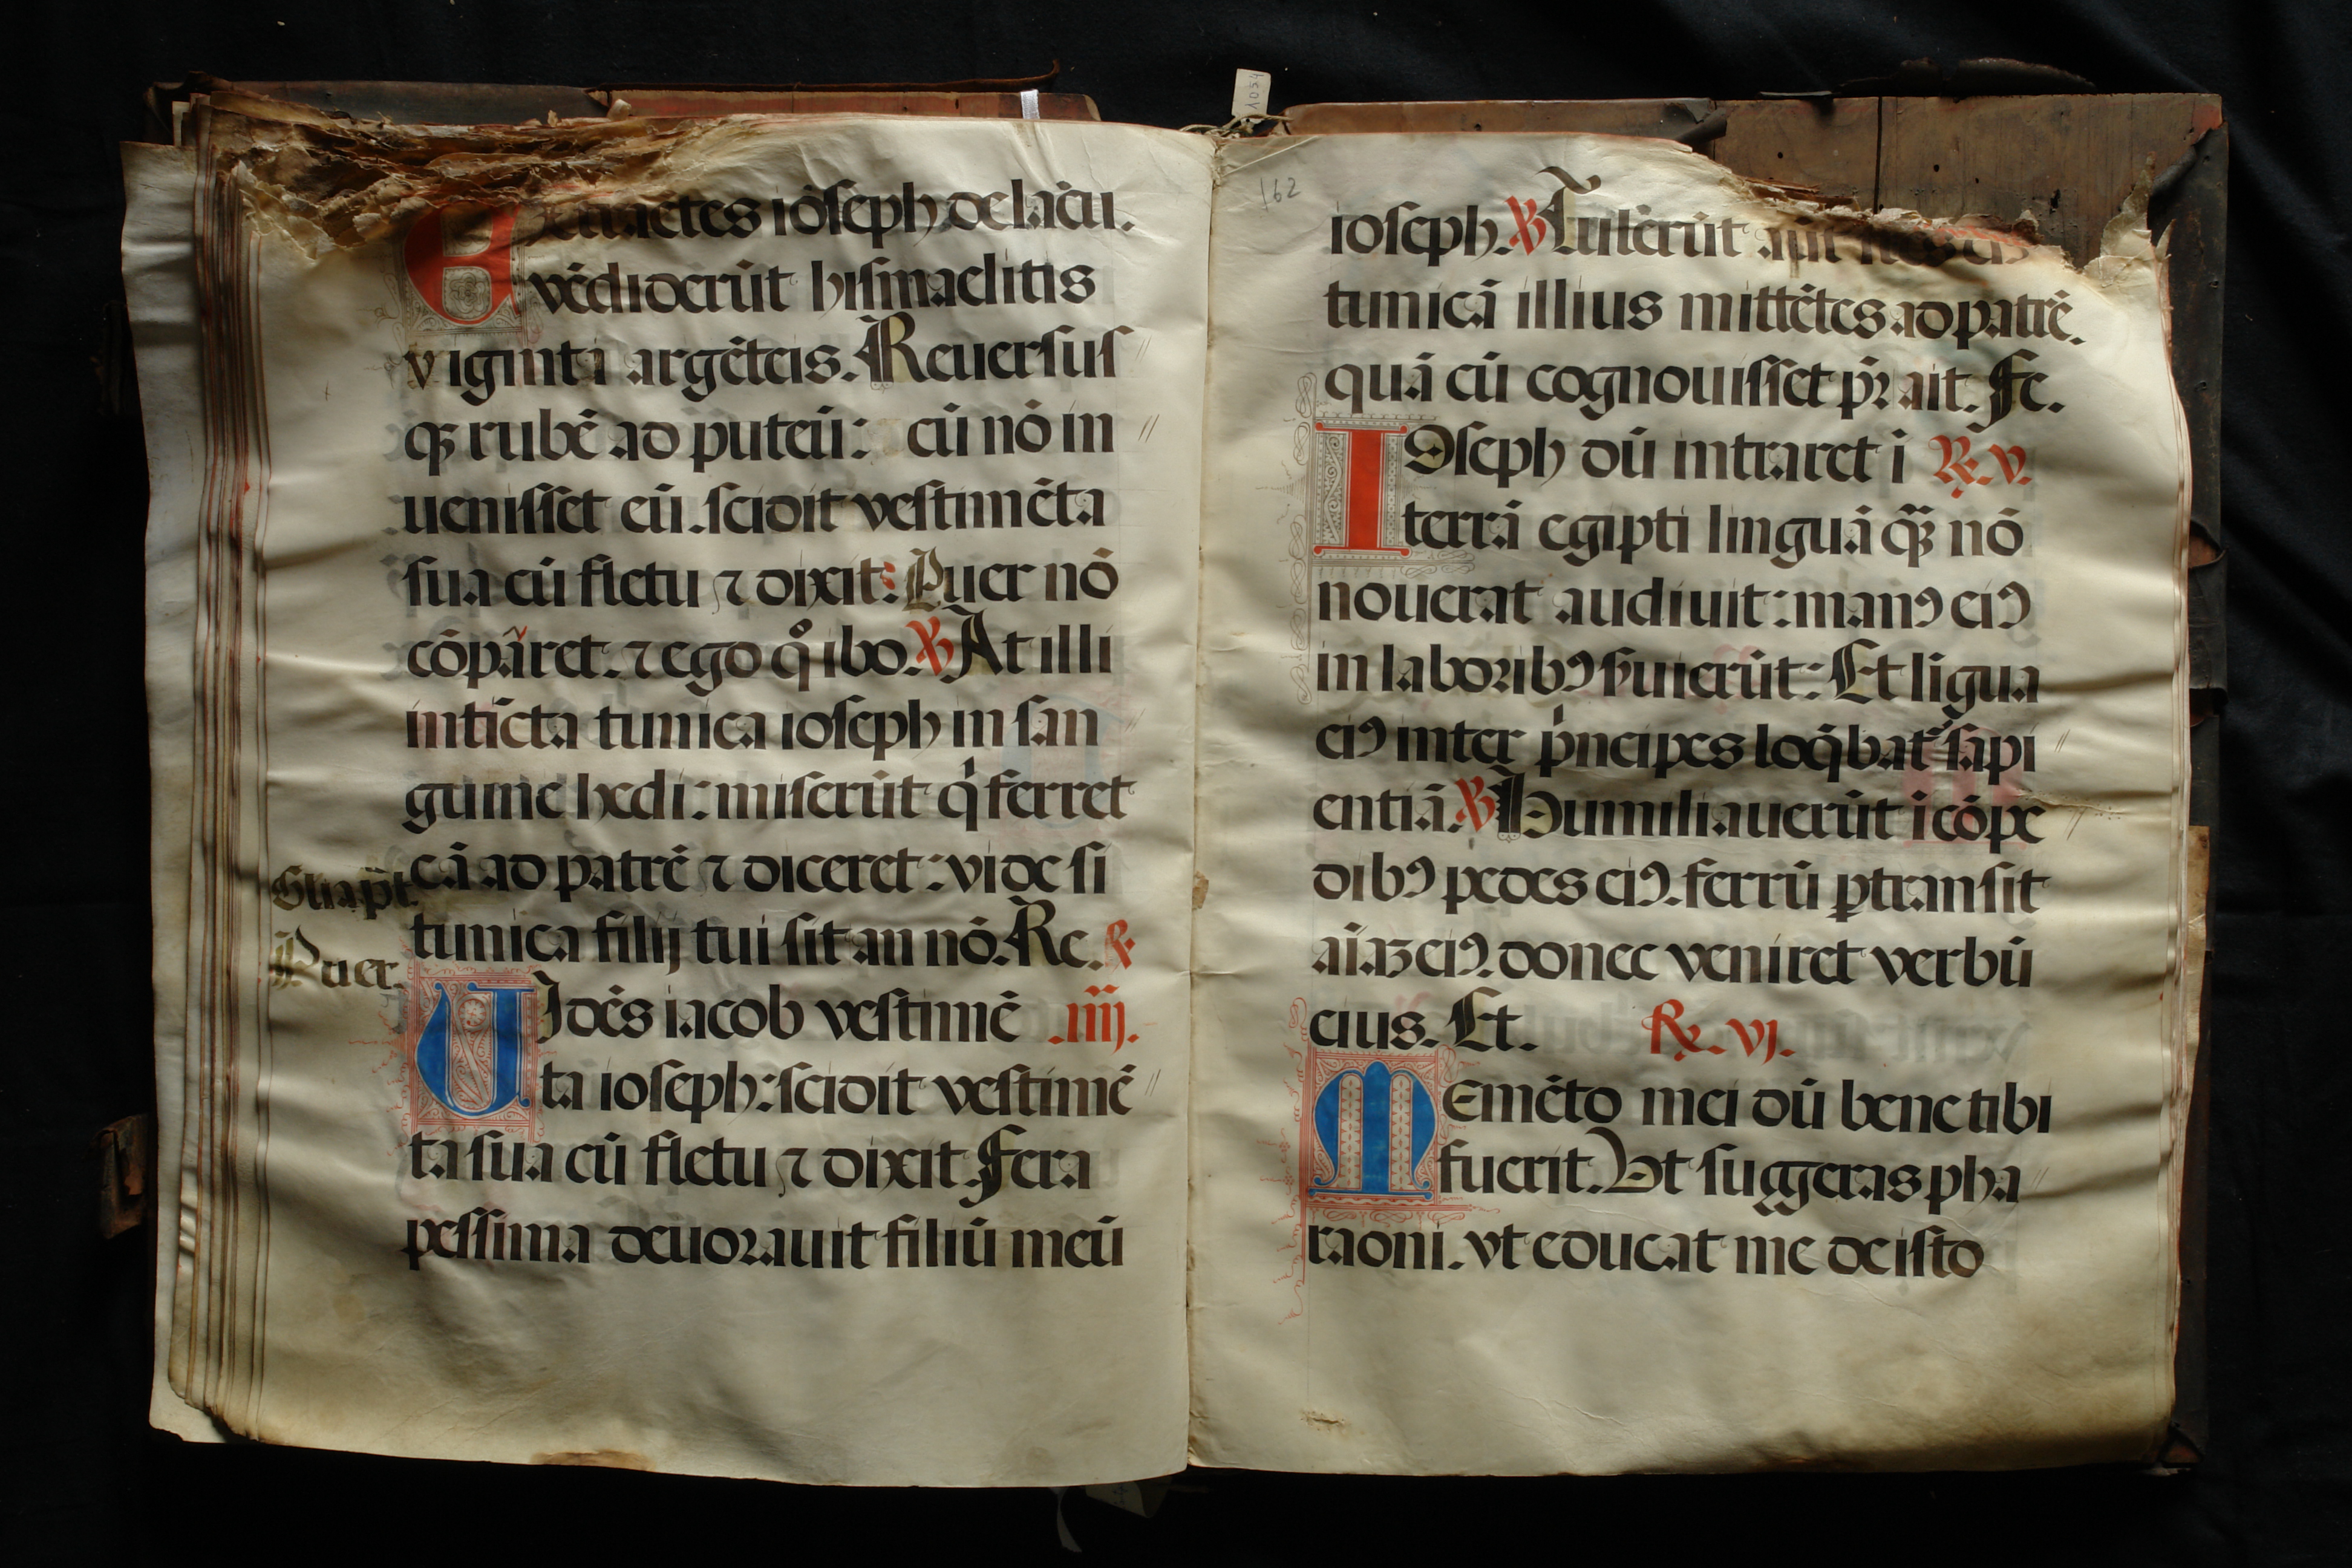 Extrahētes iōseph de lacu.
vēdiderūt hismaelitis
viginti argēteis. Reuersus
qꝫ rubē ad puteū: cū nō in //
uenisset eū. scidit vestimēta
sua cū fletu ⁊ dixit: Puer nō
cōpāret. ⁊ ego qͦ ibo. ℣ At illi
intīcta tunica ioseph in san //
guine hedi: miserūt qͥ ferret
eā ad patrē ⁊ diceret: vide si
Gliapr̄t.
tunica filij tui sit an nō. Re. ℟
Puer.
Vidēs iacob vestimē .iiij.
ta ioseph: scidit vestimē //
ta sua cū fletu ⁊ dixit. Fera
pessima deuorauit filiū meū
1054
162
ioseph. ℣ Tulerūt aūt
tunicā illius mittētes ad patrē.
quā cū cognouisset pr̄ ait. Fe.
Ioseph dū intraret i ℟. v.
terrā egipti linguā qꝫ̄ nō
nouerat audiuit: manꝰ eiꝰ
in laboribꝰ ẜuierūt: Et ligua
eiꝰ inter pͥncipes loq̄bat᷑ sapi //
entiā. ℣ Humiliauerūt i cōpe //
dibꝰ pedes eiꝰ. ferrū ꝑtransit
aīaꝫ eiꝰ. donec veniret verbū
eius. Et. ℟. vj.
Memēto mei dū bene tibi
fuerit. Vt suggeras pha //
raoni. vt educat me de isto